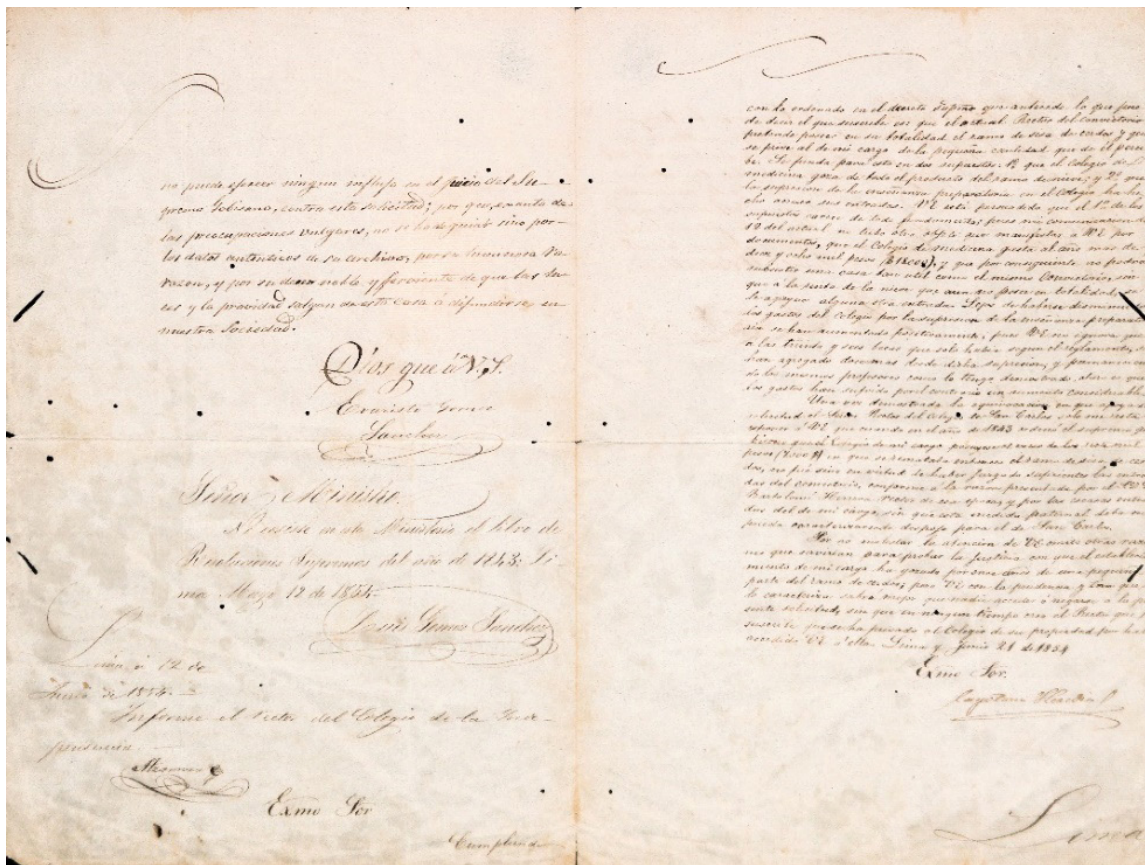 no puede ejercer ningun influjo en el juicio del Su-
premo Gobierno, contra esta solicitud; por que, exento de
las preocupaciones vulgares, no se ha de guiar sino por
los datos autenticos de su archivo, por su luminosa
razon, y por su deseo noble y ferviente de que las lu-
ces y la providad salgan de esta Casa á difundirse en
nuestra Sociedad.
Dios gue á V.S.
Evaristo Gomez
Sanchez
Señor Ministro
No existe en este Ministerio el libro de
Resoluciones Supremas del año de 1843. Li-
ma Mayo 12 de 1854.
Gomez Sanchez
Lima, á 12 de
Junio de 1854.
Informe el Rector del Colegio de la Inde-
pendencia.
Exmo Sor
Cumpliendo
con lo ordenado en el decreto Supmo que antecede lo que pue
de decir el que suscribe es que el actual Rector del Convictorio
pretende poseer en su totalidad el ramo de sisa de cerdos y que
se prive al de mi cargo de la pequeña cantidad que de él perci
be. Se funda para esto en dos supuestos: 1º que el Colegio de
medicina goza de todo el producto del ramo de nieve; y 2º que
la supresion de la enseñanza preparatoria en el Colegio ha he
cho su entradas. VE está persuadido que el 1º de los
supuestos carece de todo fundamento; pues mi comunicacion
12 del actual en dicho otro manifesta á VE por
documentos, que el Colegio de medicina gasta al año mas de
diez y ocho mil pesos ($ 18000), y que por consiguiente no podria
subsistir una casa tan util como el mismo Convictorio, sin
que á la renta de la nieve que aun que posee en totalidad, se
le agregue alguna otra entrada. Lejos de haberse disminuido
los gastos del Colegio por la supresion de la enseñanza preparato
ria se han aumentado positivamente, pues VE no ignora que
á las treinta y seis becas que solo habia segun el reglamento, se
han agregado doce mas desde dicha supresion, y permaneciendo
los mismos profesores como lo tengo demostrado, claro es que
los gastos han sufrido por el contrario un aumento considerable
Una vez demostrada la equivocacion en que
solicitud el Señor Rector del Colegio de San Carlos, solo me resta
esponer á VE que cuando en el año de 1843 ordenó el supremo go
bierno que el Colegio de mi cargo percibiese de los siete mil
pesos (7.000 $) en que se remataba entonces el ramo de sisa de cer
dos, no fué sino en virtud de haber juzgado suficientes las entra
das del convictorio, conforme á la razon presentada por el
Bartolomé Herrera Rector de esa epoca, y por las escasas entra
das del de mi cargo, sin que esta medida paternal
pueda caracterizarse despojo para el de San Carlos.
Por no molestar la atencion de VE omito otras razo
nes que servirian para probar la justicia con que el estableci
miento de mi cargo ha gozado por once años de una pequeña
parte del ramo de cerdos; pero VE con la prudencia y tino que
le caracteriza sabrá mejor que nadie acceder ó negarse á la pre
sente solicitud, sin que en ningun tiempo crea el Rector que
suscribe que se ha privado al Colegio de su propiedad por haber
accedido VE á ella. Lima y Junio 21 de 1854
Exmo Sor.
Cayetano Heredia
Lima